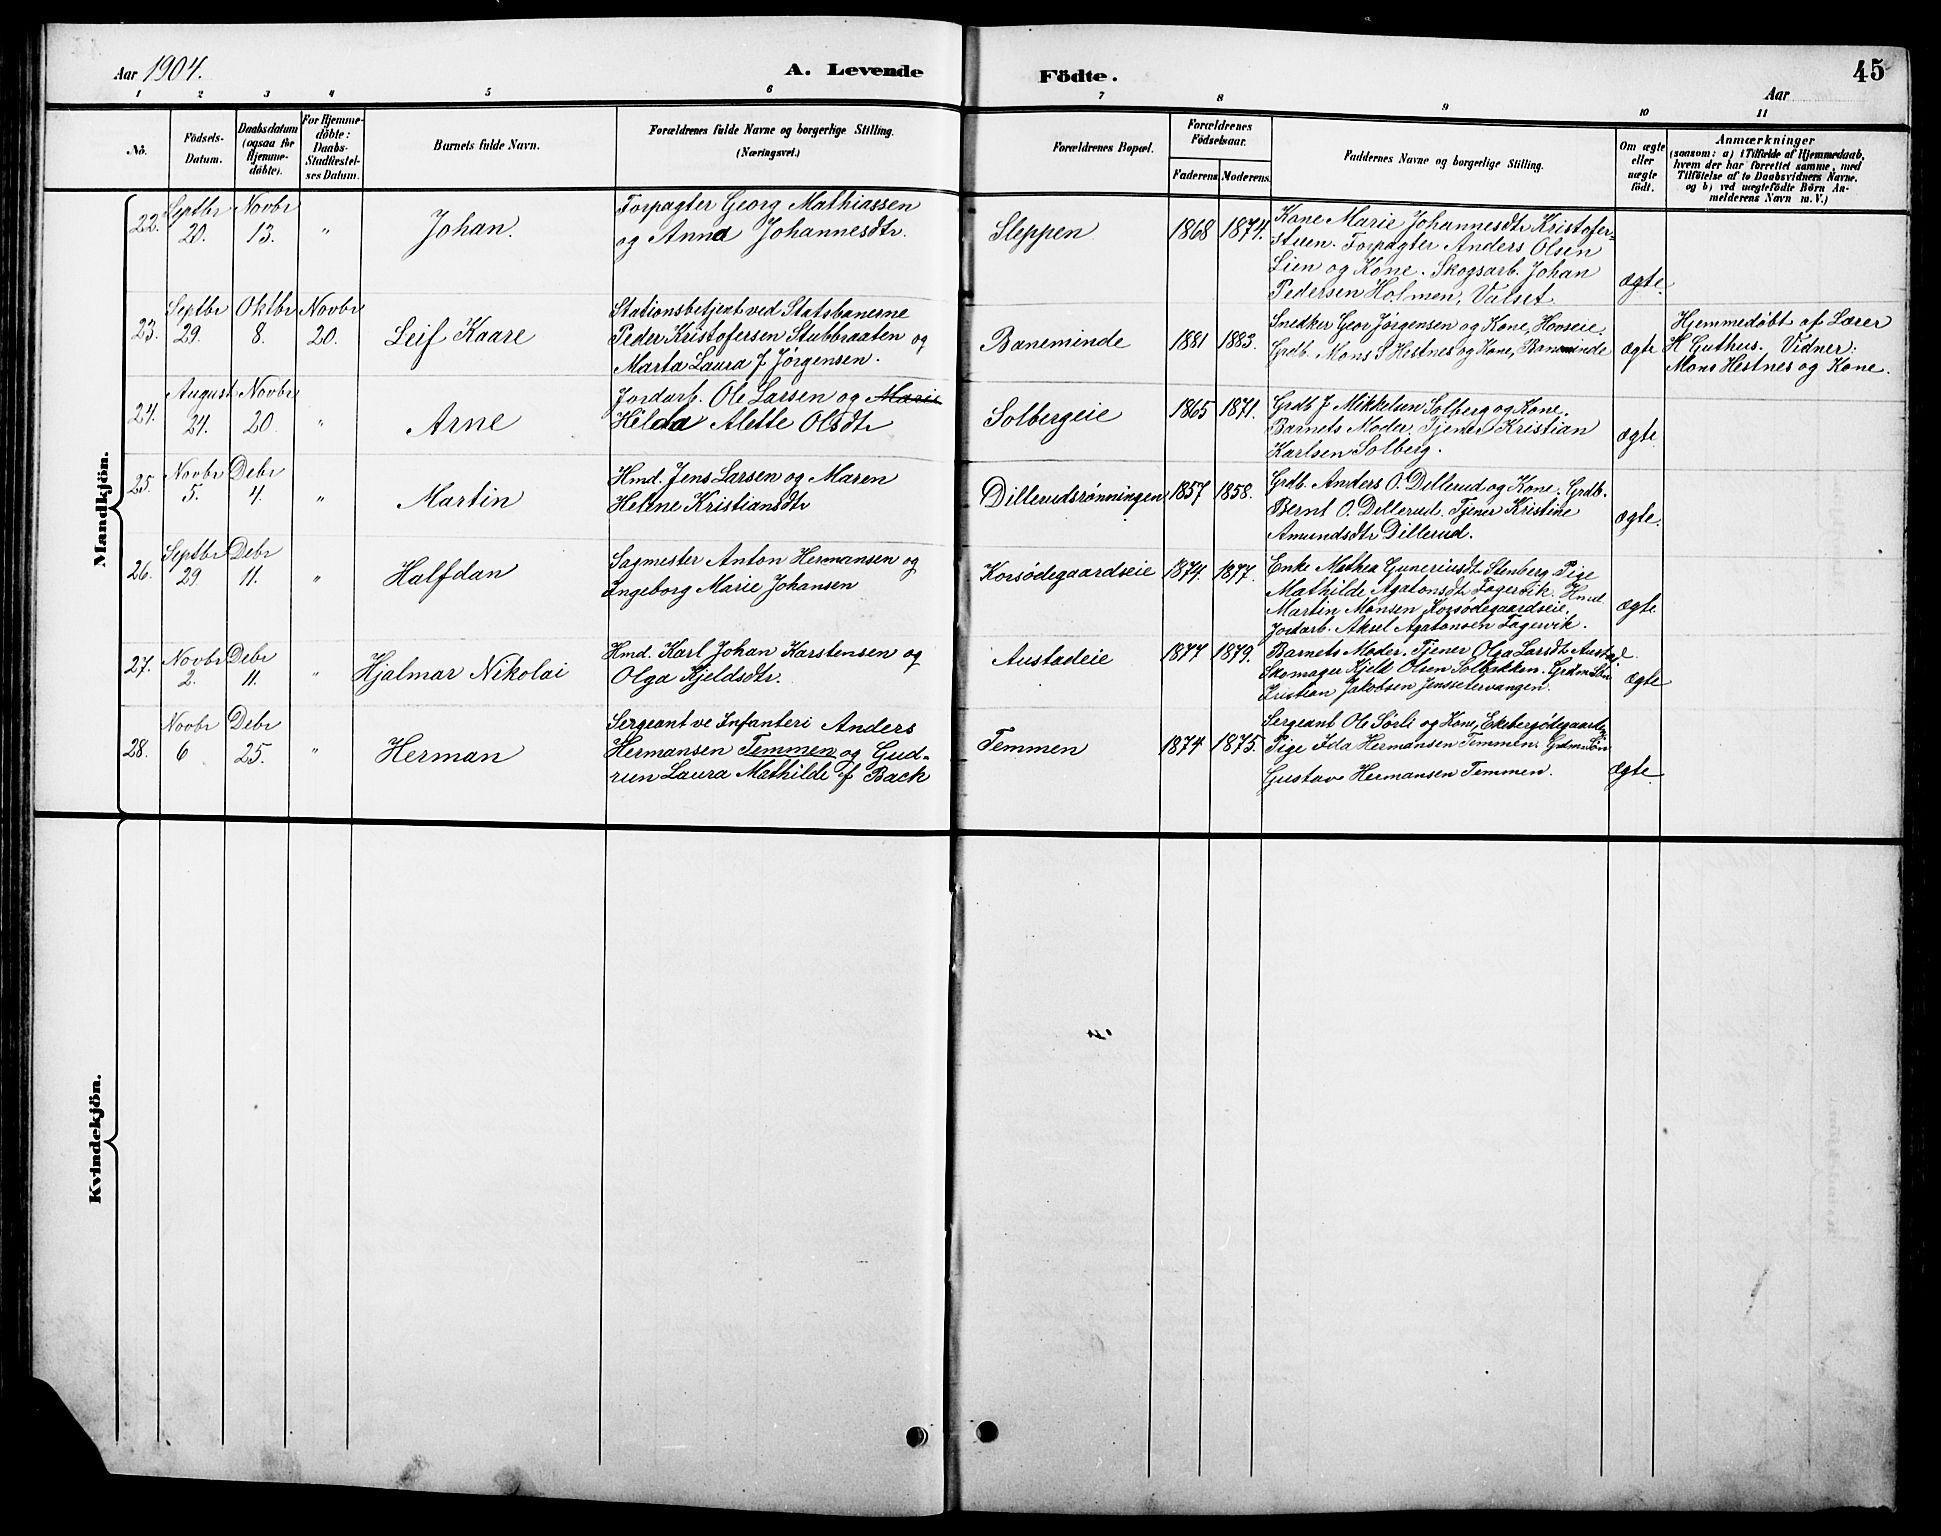 Aar 1904. A. Levende Födte. 45
Aar
1 2 3 4 5 6 7 8 9 10 11
No. Födsels-Datum. Daabsdatum (ogsaa for Hjemme-döbte). For Hjemme-döbte: Daabs-Stadfæstel-ses Datum. Barnets fulde Navn. Forældrenes fulde Navne og borgerlige Stilling. (Næringsvei.) Forældrenes Bopæl. Forældrenes Födselsaar. Faderens. Moderens. Faddernes Navne og borgerlige Stilling. Om ægte eller uægte födt. Anmærkninger (saasom: a) i Tilfælde af Hjemmedaab, hvem der har forrettet samme, med Tilföielse af to Daabsvidners Navne. og b) ved uægtefödte Börn An-melderens Navn m. V.)
Mandkjön.
22. Septbr 20. Novbr 13. " Johan.
Forpagter Georg Mathiassen
og Anna Johannesdtr.
Sleppen 1868 1874.
Kone Marie Johannesdtr Kristofer-
stuen. Forpagter Anders Olsen
Lien og Kone. Skogsarb. Johan
Pedersen Holmen, Valset.
Ægte.
23. Septbr 29. Oktbr 8. Novbr 20. Leif Kaare
Stationsbetjent ved Statsbanerne
Peder Kristofersen Stubbraaten og
Marta Laura J. Jørgensen.
Baneminde 1881 1883.
Snedker Geor Jørgensen og Kone, Hovseie.
Grdb. Mons S Hestnes og Kone, Baneminde
Ægte
Hjemmedøbt af Lærer
H Guthus. Vidner:
Mons Hestnes og Kone.
24. August 24. Novbr 20. " Arne
Jordarb. Ole Larsen og Marie
Hilda Alette Olsdtr
Solbergeie 1865 1871.
Grdb J. Mikkelsen Solberg og Kone.
Barnets Moder. Tjener Kristian
Karlsen Solberg.
Ægte.
25. Novbr 5. Debr 4. " Martin
Hmd. Jens Larsen og Maren
Helene Kristiansdtr
Dillerudsrønningen 1857 1858.
Grdb. Anders O. Dillerud og Kone. Grdb.
Bernt O. Dellerud. Tjener Kristine
Amundsdtr Dillerud.
Ægte.
26. Septbr 29 Debr 11. " Halfdan
Sagmester Anton Hermansen og
Ingeborg Marie Johansen
Korsödegaardseie 1874. 1877.
Enke Mathea Guneriusdt Stenberg. Pige
Mathilde Agatonsdt Fagervik. Hmd.
Martin Monsen Korsödegaardseie,
Jordarb. Aksel Agatonsen Fagervik.
Ægte.
27. Novbr 2. Debr 11. " Hjalmar Nikolai
Hmd. Karl Johan Karstensen og
Olga Kjeldsdtr.
Austadeie 1877 1879.
Barnets Moder. Tjener Olga Larsdt Austad.
Skomager Kjeld Olsen Solbakken. Grdm Søn
Kristian Jakobsen Jenssetervangen.
Ægte
28. Novbr 6 Debr 25. " Herman
Sergeant ve Infanteri Anders
Hermansen Temmen og Gud-
run Laura Mathilde f Back
Temmen 1874 1875.
Sergeant Ole Sörli og Kone,
Pige Ida Hermansen Temmen. Grdm Søn
Gustav Hermansen Temmen.
Ægte.
Kvindekjön.